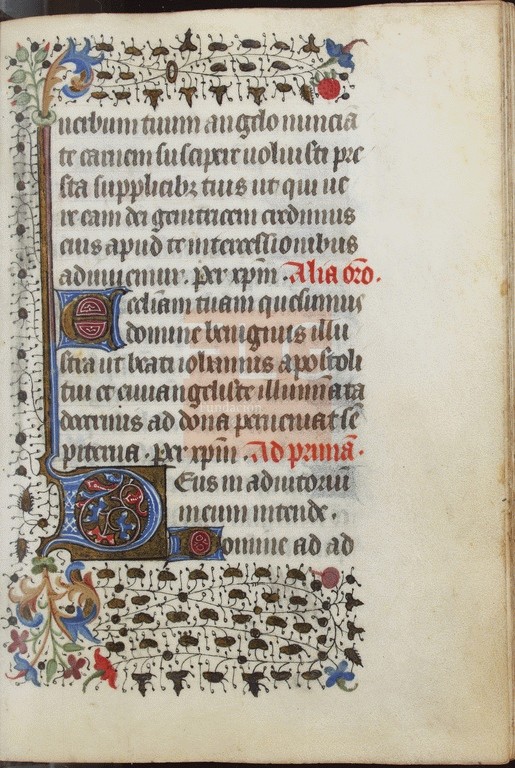 uerbum tuum angelo nuncia
te carnem suscipere uoluisti pre
sta supplicibz tuis ut qui ue
re eam dei genitricem credimus
eius apud te intercessionibus
adiuuemur. per xpm. Alia oro.
Ecclīam tuam quesumus
domine benignus illu
stra ut beati iohannis apostoli
tui et euuangeliste illuminata
doctrinis ad dona perueniat sē
piterna. per xpm. Ad primā.
Deus in adiutoriū
meum intende.
Domine ad ad
Fundación